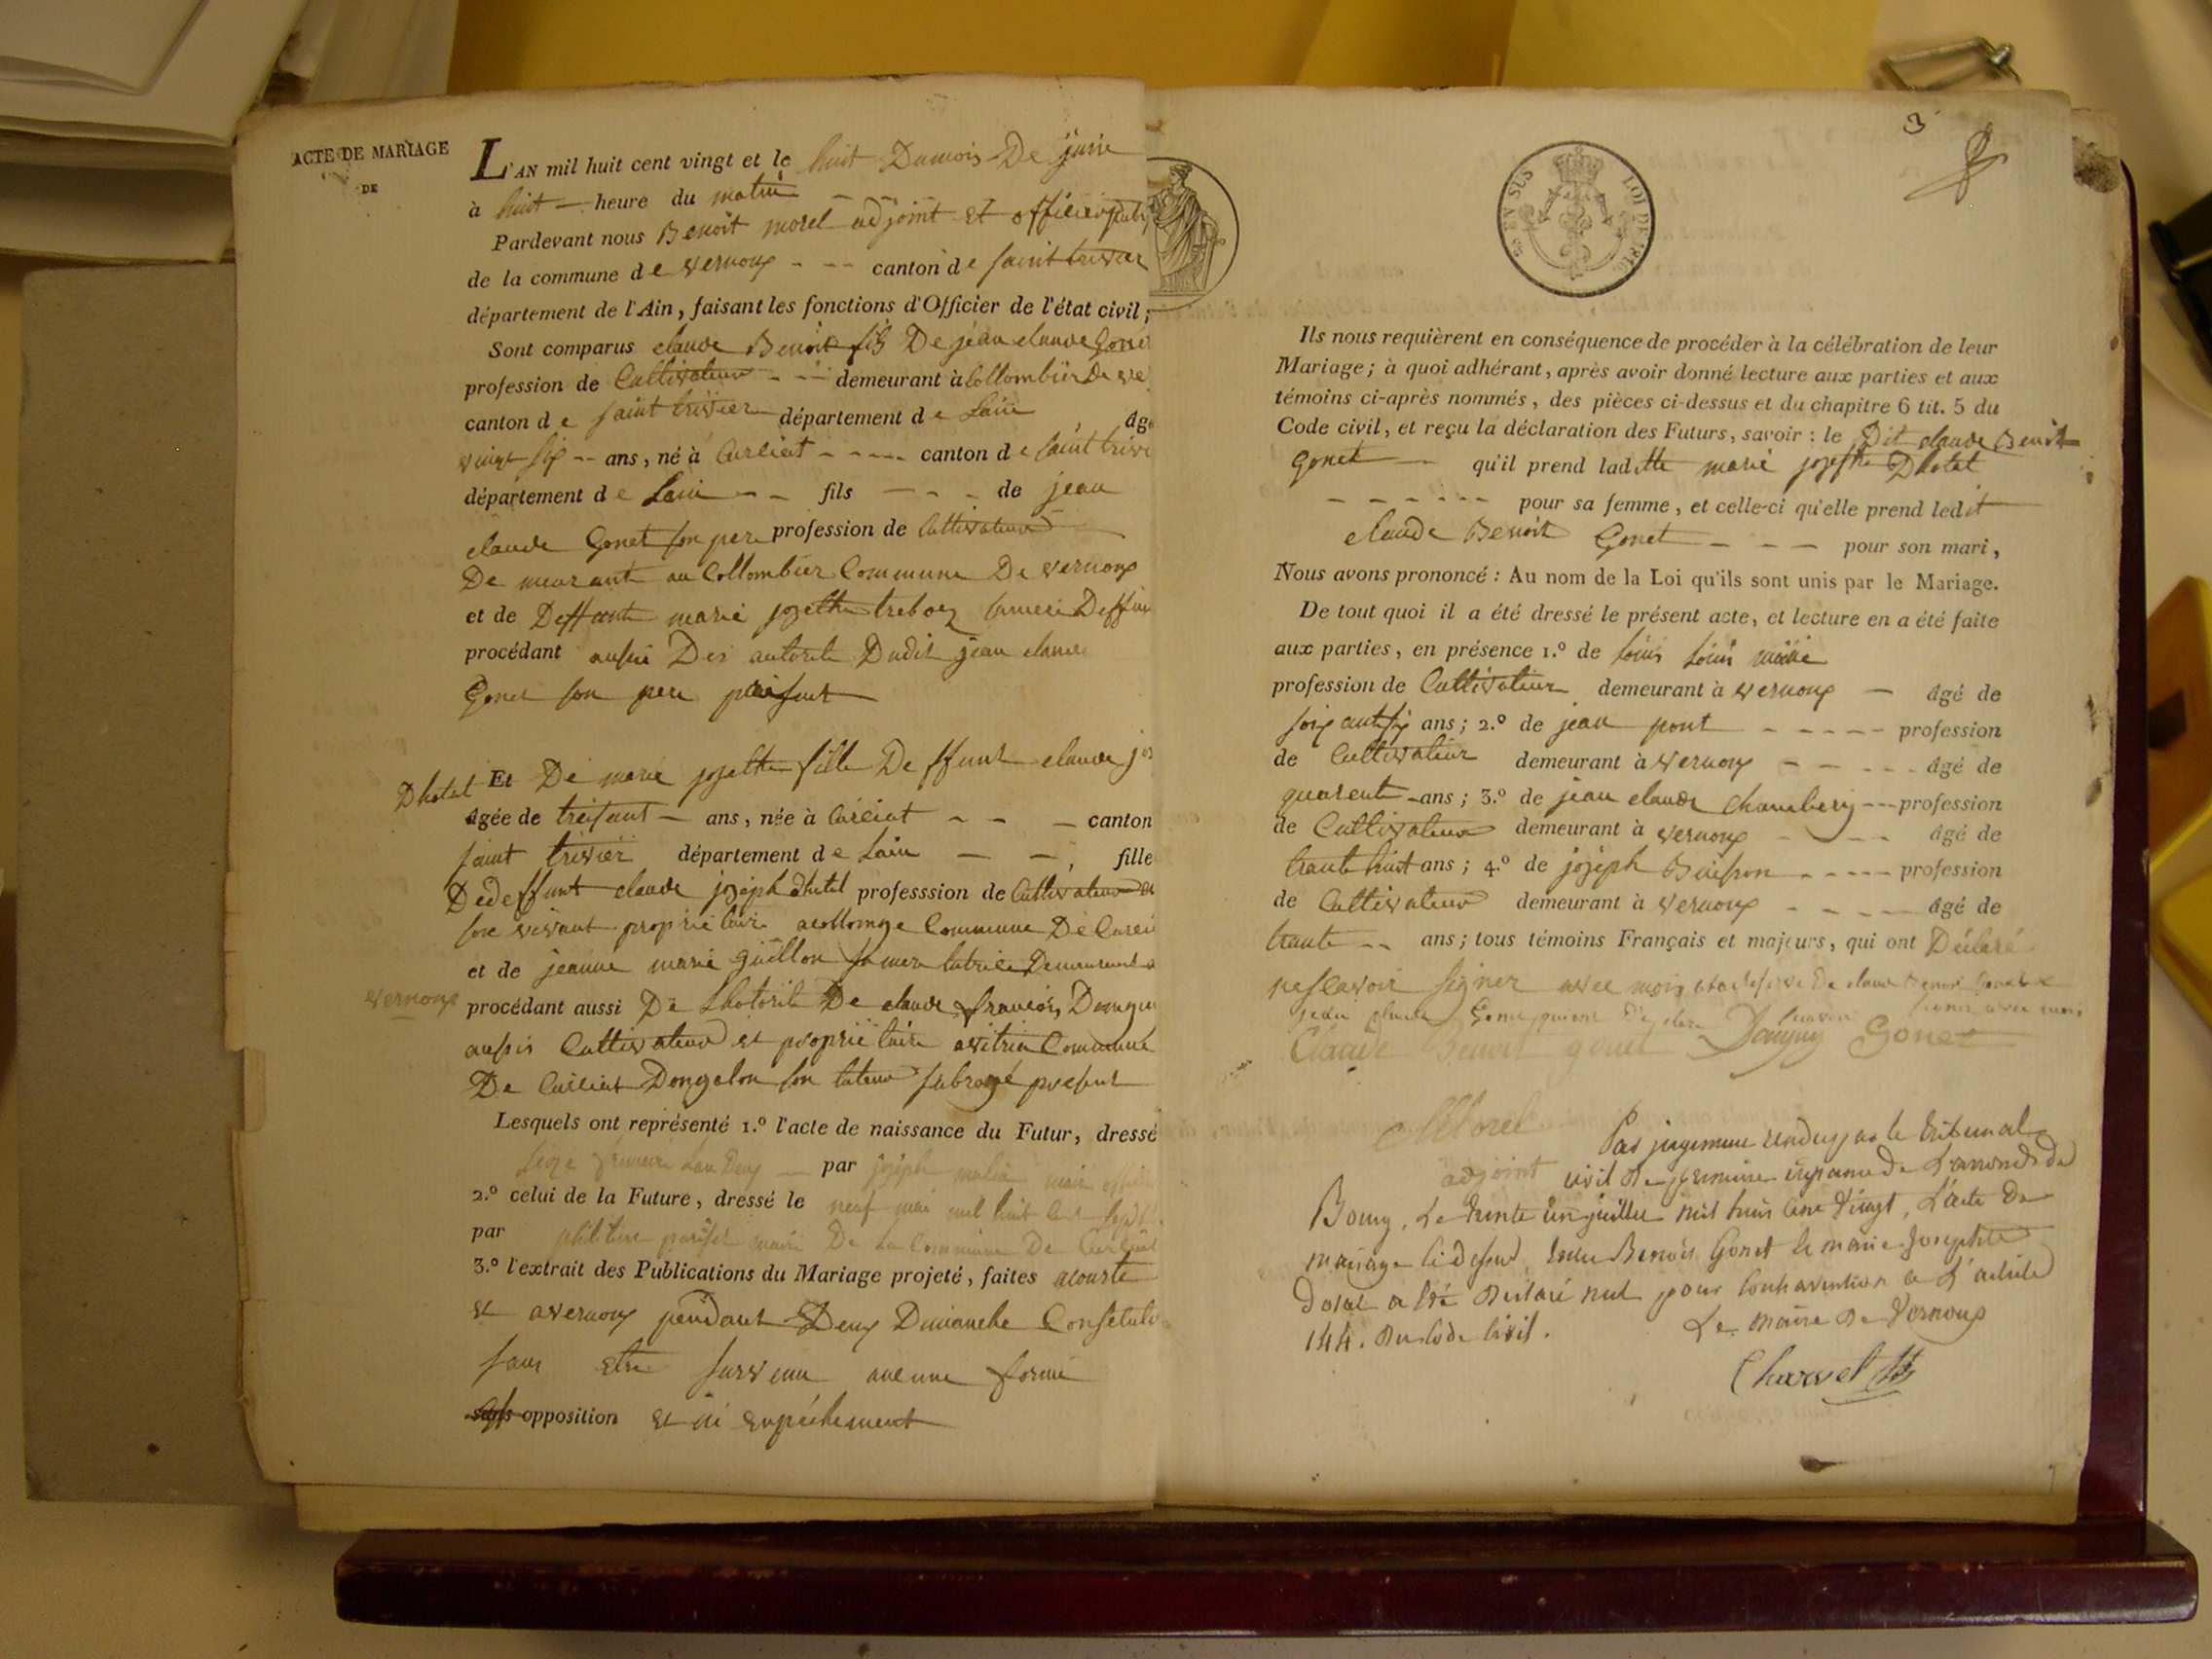 ACTE DE MARIAGE
DE
L'AN mil huit cent vingt et le huit Du mois De juin
à huit heure du matin
Pardevant nous Benoit morel adjoint et officier publ
de la commune de vernoux canton de saint trivier
département de l'Ain, faisant les fonctions d'Officier de l'état civil;
Sont comparus claude Benoit fils De jean claude Gonet
profession de Cultivateur demeurant à Collombier De ve
canton de saint trivier département de Lain âgé
vingt six ans, né à Curciat canton de saint trivi
département de Lain fils de jean
claude Gonet son pere profession de Cultivateur
De meurant au Collombier Commune De vernoux
et de Deffunte marie josette treboz sa mere Deffun
procédant aussi Des autorite Dudit jean claude
Gonet son pere présent
Dhotel Et De marie josette fille De ffunt claude jos
âgée de treisant ans, née à Curciat canton
saint trivier département de Lain fille
De deffunt claude joseph dhotel professsion de Cultivateur
son vivant proprietaire a collonge Commune De Curci
et de jeanne marie guillon sa mere tutrice Demeurant a
vernoux procédant aussi De Lhotorité De claude francois
aussis Cultivateur et proprietaire Commune
De Curciat Dongalon son tuteur subrogé present
Lesquels ont représenté 1.º l'acte de naissance du Futur, dressé
par joseph maire
2.º celui de la Future, dressé le neuf mai mil huit cent sept
par maire De La Commune De Curciat
3.º l'extrait des Publications du Mariage projeté, faites
et a vernoux pendant Deux Dimanche Consetuti
sans etre survenu aucune forme
opposition et ni enpéchement
3
EN SUS
LOI DE 1816
Ils nous requièrent en conséquence de procéder à la célébration de leur
Mariage; à quoi adhérant, après avoir donné lecture aux parties et aux
témoins ci-après nommés, des pièces ci-dessus et du chapitre 6 tit. 5 du
Code civil, et reçu la déclaration des Futurs, savoir: le Dit claude Benoit
Gonet qu'il prend laditte marie josephe Dhotel
pour sa femme, et celle-ci qu'elle prend ledit
claude Benoit Gonet pour son mari,
Nous avons prononcé: Au nom de la Loi qu'ils sont unis par le Mariage.
De tout quoi il a été dressé le présent acte, et lecture en a été faite
aux parties, en présence 1.º de Louis Louis
profession de Cultivateur demeurant à vernoux âgé de
soixantesix ans; 2.º de jean pont profession
de Cultivateur demeurant à vernoux âgé de
quarente ans; 3.º de jean claude Chambery profession
de Cultivateur demeurant à vernoux âgé de
trante huit ans; 4.º de joseph Buisson profession
de Cultivateur demeurant à vernoux âgé de
trante ans; tous témoins Français et majeurs, qui ont Déclaré
ne scavoir signer avec mois De claude Benoit Gonet
jean claude Gonet signer avec mois
Claude Benoit gonet Gonet
Morel
adjoint
Par jugement rendu par le tribunal
civil de premiere instance de L'arrond. de
Bourg, Le trente un juillet mil huit cent vingt, L'acte de
mariage ci dessus, entre Benoit Gonet & marie Josephte
dotal a été déclaré nul pour contravention à L'article
144. du Code Civil. Le maire de Vernoux
Charvet